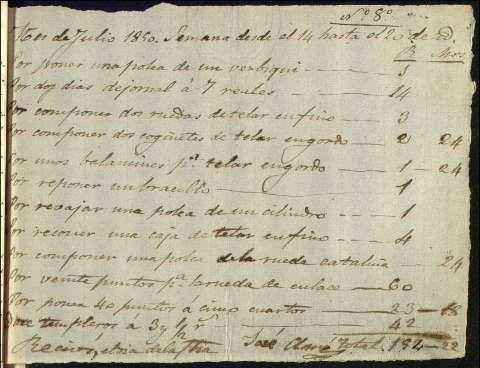 N.º 8.º
Mes de Julio 1850. Semana desde el 14 hasta el 20 de id.
R Mrs
Por poner una polea de un verbiqui 3
Por dos dias de jornal á 7 reales 14
Por componer dos ruedas de telar en fino 3
Por componer dos cogiñetes de telar en gordo 2 24
Por unos belamines p.ª telar en gordo 1 24
Por reponer un bracillo 1
Por revajar una polea de un cilindro 1
Por recorrer una caja de telar en fino 4
Por componer una polea de la rueda cataliña 24
Por veinte puntos p.ª la rueda de enlace 60
Por poner 40 puntos á cinco cuartos 23 18
Doce templeros á 3 y ½ r.s 42
Recivo, José Claró Total 154 22